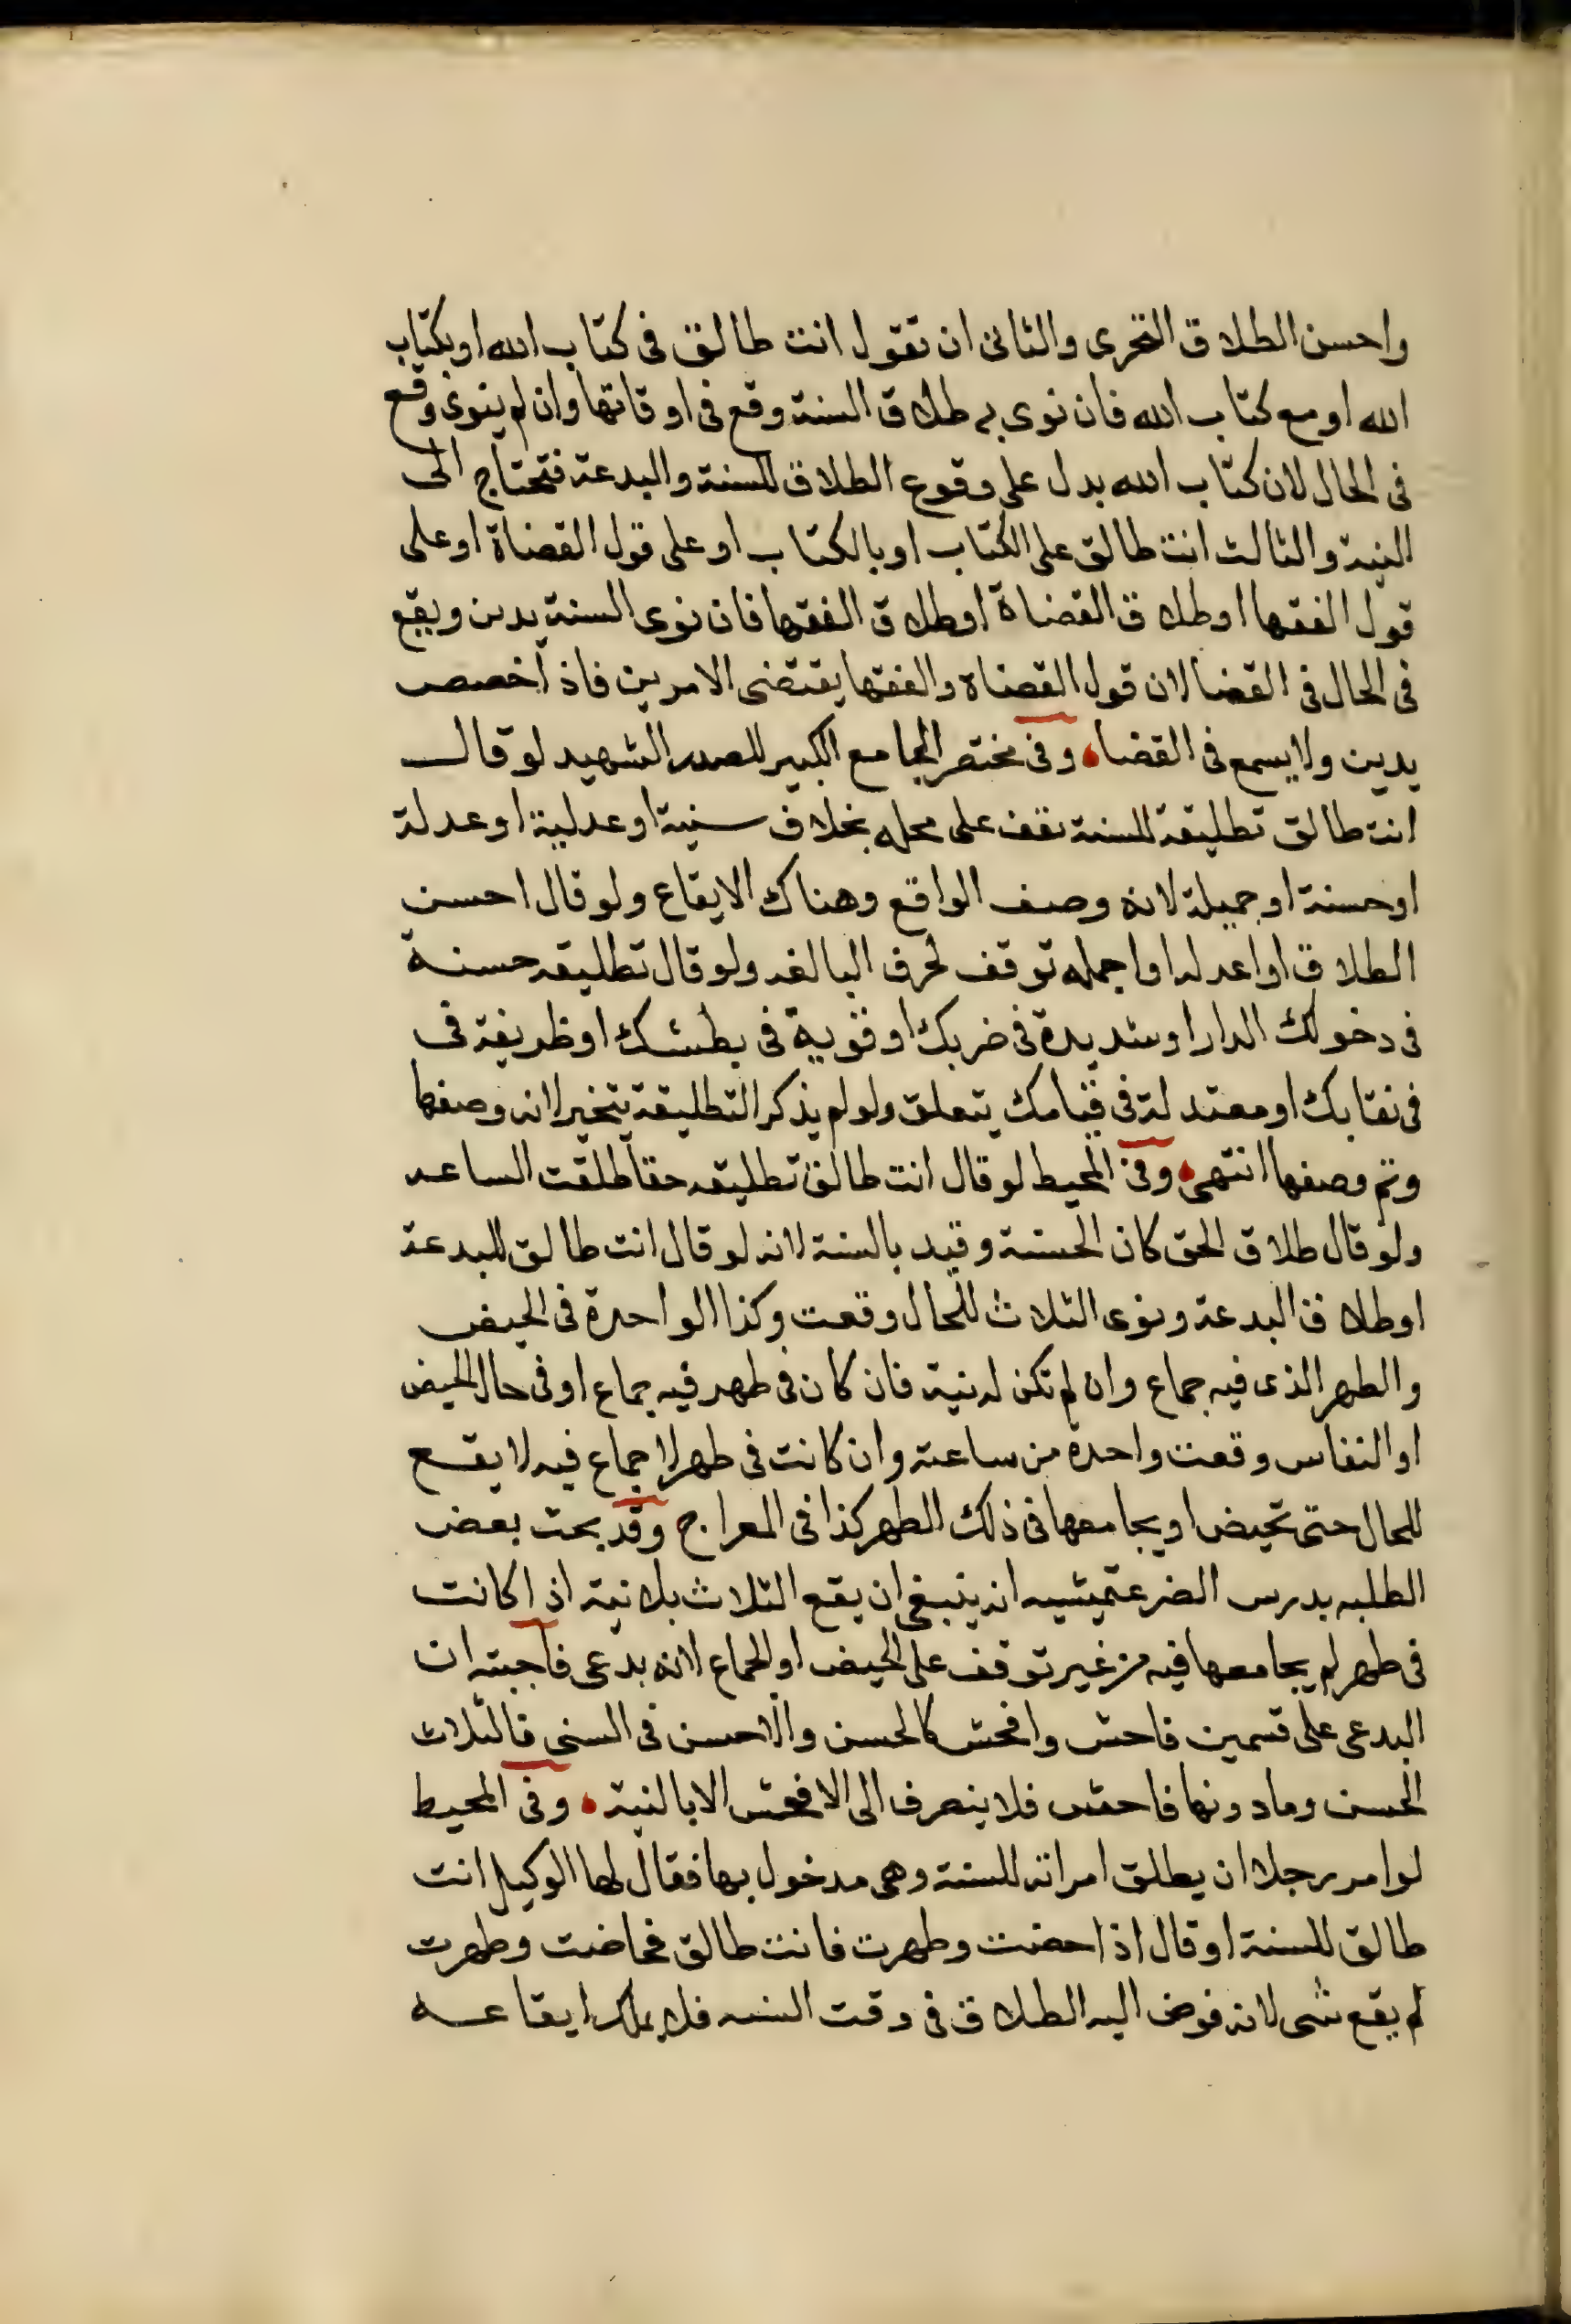 واحسن الطلاق التحرى والثانى ان تقول انت طالق فى كتاب الله او بكتاب
الله او مع كتاب الله فان نوى به طلاق السنة وقع فى اوقاتها وان لم ينوى وقع
فى الحال لان كتاب الله يدل على وقوع الطلاق للسنة والبدعة فتحتاج الى
النية والثالث انت طالق على الكتاب او بالكتاب او على قول القضاة او على
قول الفقها او طلاق القضاة او طلاق الفقها فان نوى السنة يدين ويقع
فى الحال فى القضا لان قول القضاة والفقها يقتضى الامرين فاذا خصص
يدين ولا يسمع فى القضاء وفى مختصر الجامع الكبير للصدر الشهيد لو قال
انت طالق تطليقة للسنة تقف على محله بخلاف سنية او عدلية او عدلة
او حسنة او جميلة لانه وصف الواقع وهناك الايقاع ولو قال احسن
الطلاق او اعدله او اجمله توقف لحرف البالغه ولو قال تطليقه حسنة
فى دخولك الدار او شديدة فى ضربك او قوية فى بطشك او ظريفة فى
فى نقابك او معتدلة فى قيامك يتعلق ولو لم يذكر التطليقة يتخير لانه وصفها
وتم وصفها انتهى وفى المحيط لو قال انت طالق تطليقه حقا طلقت الساعه
ولو قال طلاق الحق كان الحسنة وقيد بالسنة لانه لو قال انت طالق للبدعة
او طلاق البدعة ونوى الثلاث للحال وقعت وكذا الواحدة فى الحيض
والطهر الذى فيه جماع وان لم تكن له نية فان كان فى طهر فيه جماع او فى حال الحيض
او النفاس وقعت واحدة من ساعته وان كانت فى طهر لا جماع فيه لا يقع
للحال حتى تحيض او يجامعها فى ذلك الطهر كذا فى المعراج وقد بحث بعض
الطلبه بدرس الضرعتميشيه انه ينبغى ان يقع الثلاث بلا نية اذا كانت
فى طهر لم يجامعها فيه من غير توقف على الحيض او الجماع لانه بدعى فاجبته ان
البدعى على قسمين فاحش وافحش كالحسن والاحسن فى السنى فالثلاث
الحسن وما دونها فاحش فلا ينصرف الى الافحش الا بالنية وفى المحيط
لو امر رجلا ان يطلق امراته للسنة وهى مدخول بها فقال لها الوكيل انت
طالق للسنة او قال اذا حضت وطهرت فانت طالق فحاضت وطهرت
لم يقع شى لانه فوض اليه الطلاق فى وقت السنه فلا يملك ايقاعه